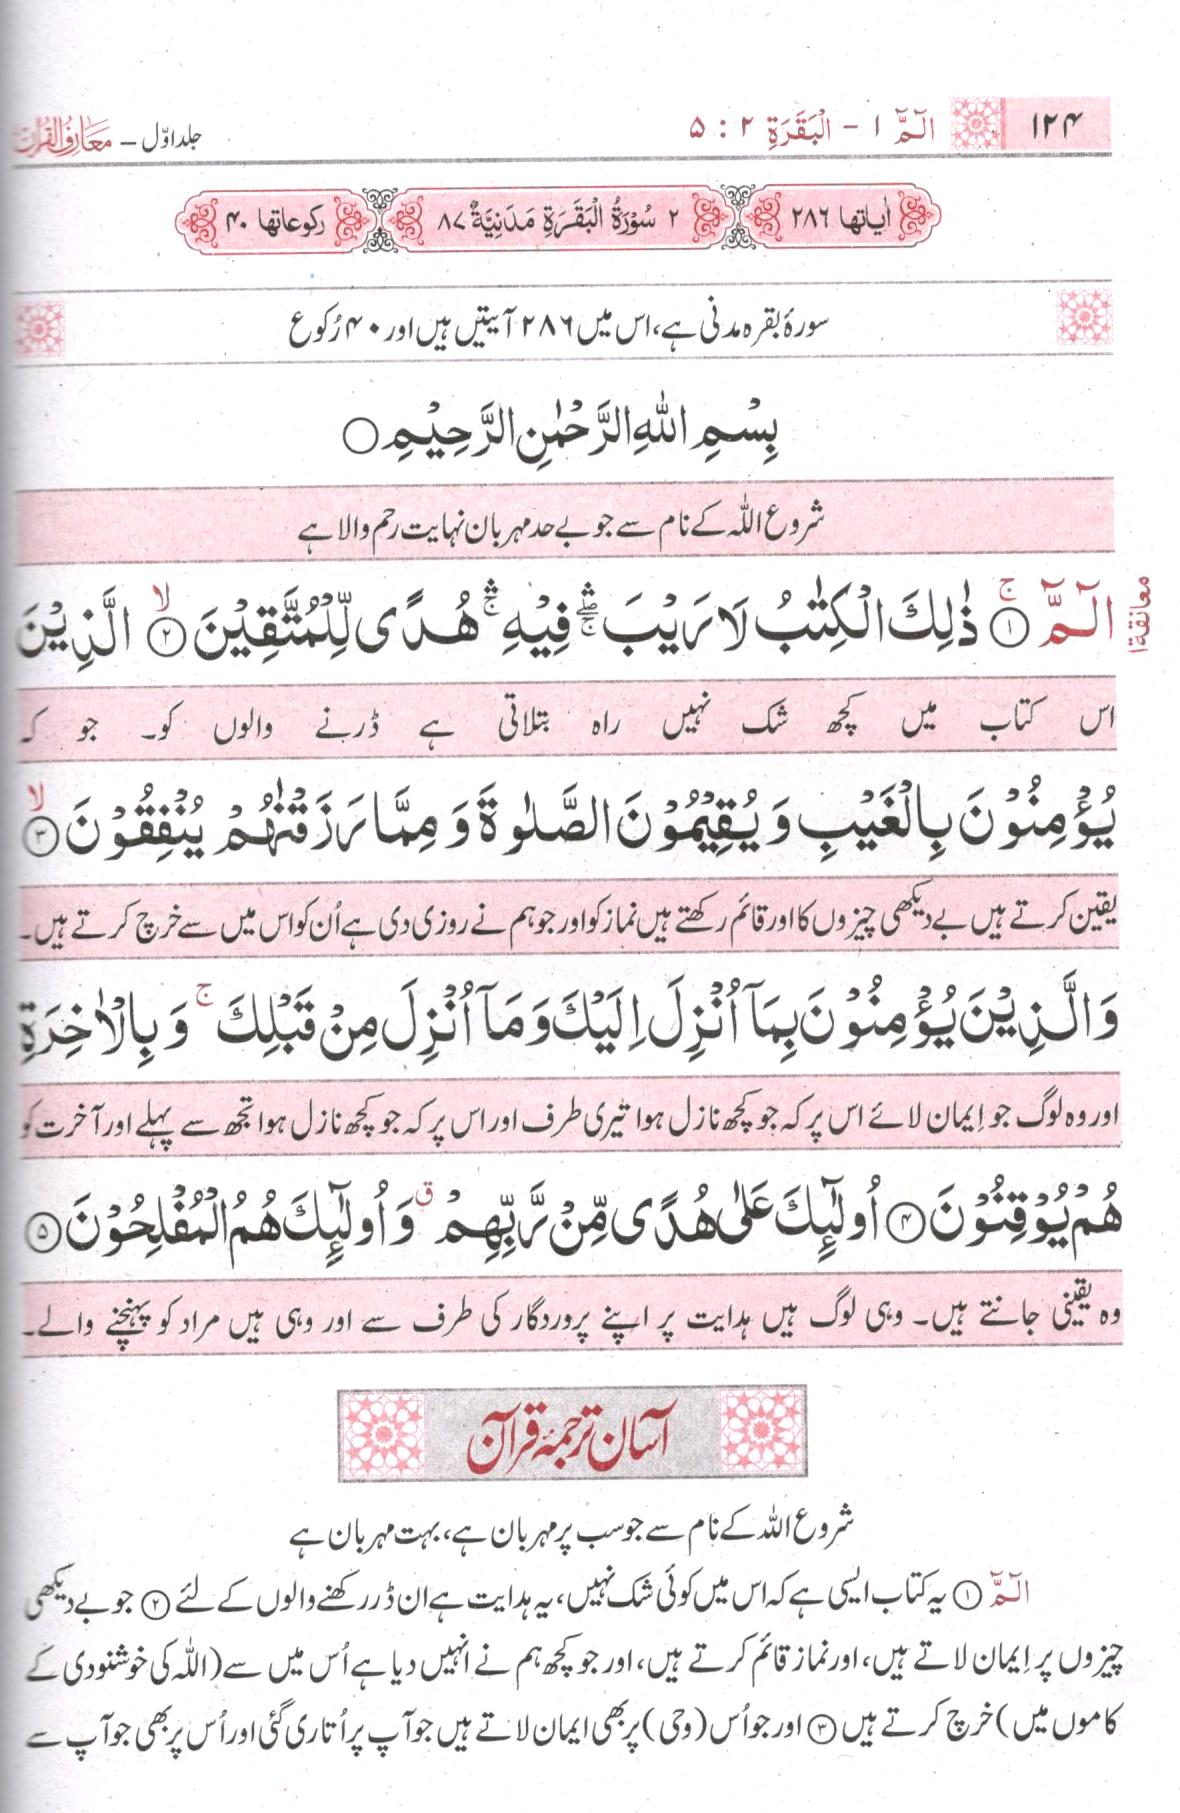 ۱۲۴ الٓمّٓ ۱ - الْبَقَرَةِ ۲ : ۵ جلد اوّل - معارف القرآن
اٰیاتها ۲۸۶ ۲ سُوْرَةُ الْبَقَرَةِ مَدَنِيَّةٌ ۸۷ رکوعاتها ۴۰
سورۂ بقرہ مدنی ہے، اس میں ۲۸۶ آیتیں ہیں اور ۴۰ رُکوع
بِسْمِ اللهِ الرَّحْمٰنِ الرَّحِيْمِ ○
شروع اللہ کے نام سے جو بے حد مہربان نہایت رحم والا ہے
معانقة ۱
الٓمّٓ ۚ﴿۱﴾ ذٰلِكَ الْكِتٰبُ لَا رَيْبَ ۛۖۚ فِيْهِ ۛۚ هُدًى لِّلْمُتَّقِيْنَ ۙ﴿۲﴾ الَّذِيْنَ
اس کتاب میں کچھ شک نہیں راہ بتلاتی ہے ڈرنے والوں کو۔ جو کہ
يُؤْمِنُوْنَ بِالْغَيْبِ وَيُقِيْمُوْنَ الصَّلٰوةَ وَمِمَّا رَزَقْنٰهُمْ يُنْفِقُوْنَ ۙ﴿۳﴾
یقین کرتے ہیں بے دیکھی چیزوں کا اور قائم رکھتے ہیں نماز کو اور جو ہم نے روزی دی ہے اُن کو اس میں سے خرچ کرتے ہیں۔
وَالَّذِيْنَ يُؤْمِنُوْنَ بِمَآ اُنْزِلَ اِلَيْكَ وَمَآ اُنْزِلَ مِنْ قَبْلِكَ ۚ وَبِالْاٰخِرَةِ
اور وہ لوگ جو اِیمان لائے اس پر کہ جو کچھ نازل ہوا تیری طرف اور اس پر کہ جو کچھ نازل ہوا تجھ سے پہلے اور آخرت کو
هُمْ يُوْقِنُوْنَ ﴿۴﴾ اُولٰٓئِكَ عَلٰى هُدًى مِّنْ رَّبِّهِمْ ۗ وَاُولٰٓئِكَ هُمُ الْمُفْلِحُوْنَ ﴿۵﴾
وہ یقینی جانتے ہیں۔ وہی لوگ ہیں ہدایت پر اپنے پروردگار کی طرف سے اور وہی ہیں مراد کو پہنچنے والے۔
آسان ترجمۂ قرآن
شروع اللہ کے نام سے جو سب پر مہربان ہے، بہت مہربان ہے
الٓمّٓ ﴿۱﴾ یہ کتاب ایسی ہے کہ اس میں کوئی شک نہیں، یہ ہدایت ہے ان ڈر رکھنے والوں کے لئے ﴿۲﴾ جو بے دیکھی
چیزوں پر اِیمان لاتے ہیں، اور نماز قائم کرتے ہیں، اور جو کچھ ہم نے انہیں دیا ہے اُس میں سے (اللہ کی خوشنودی کے
کاموں میں) خرچ کرتے ہیں ﴿۳﴾ اور جو اُس (وحی) پر بھی ایمان لاتے ہیں جو آپ پر اُتاری گئی اور اُس پر بھی جو آپ سے